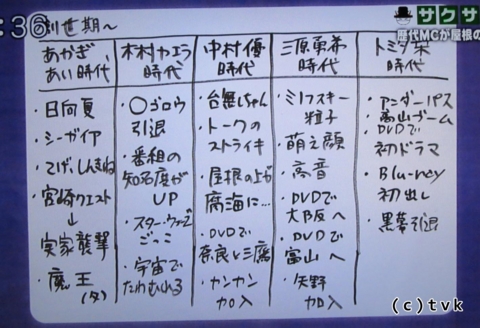 :36
サクサ
歴代MCが屋根の
創世期〜
あかぎ
あい時代
・日向夏
・シーガイア
・てげ、しんきね
・宮崎クエスト
↓
実家襲撃
・魔王
(タ)
木村カエラ
時代
・○ゴロウ
引退
・番組の
知名度が
UP
・スター・ウォーズ
ごっこ
・宇宙で
たわむれる
中村優
時代
・台無しちゃん
・トークの
ストライキ
・屋根の上が
腐海に…
・DVDで
奈良と三腐
・カンカン
加入
三原勇希
時代
・ミノフスキー
粒子
・萌え顔
・高音
・DVDで
大阪へ
・DVDで
富山へ
・矢野
加入
トミタ栞
時代
・アンダーパス
・高山ブーム
DVDで
初ドラマ
・Blu-ray
初出し
・黒幕引退
(c)tvk